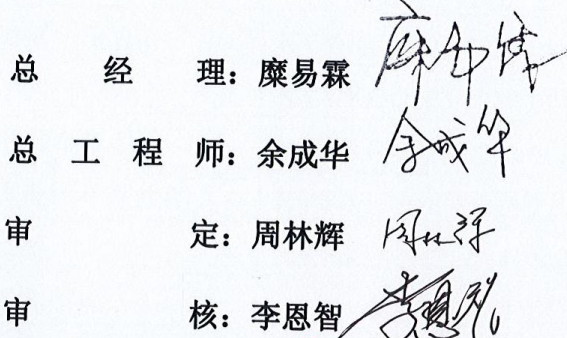 总经理：糜易霖
总工程师：余成华 余成华
审定：周林辉 周林辉
审核：李恩智